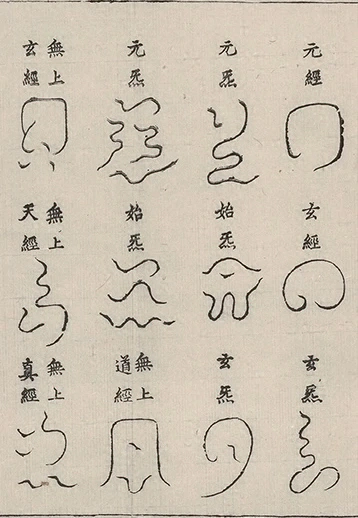 元經
玄經
玄炁
元炁
始炁
玄炁
元炁
始炁
無上道經
無上玄經
無上天經
無上真經